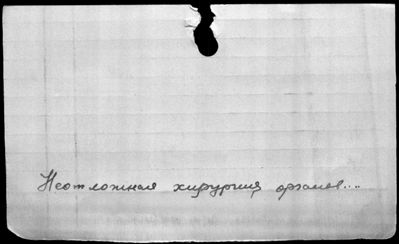 Неотложная хирургия органов....